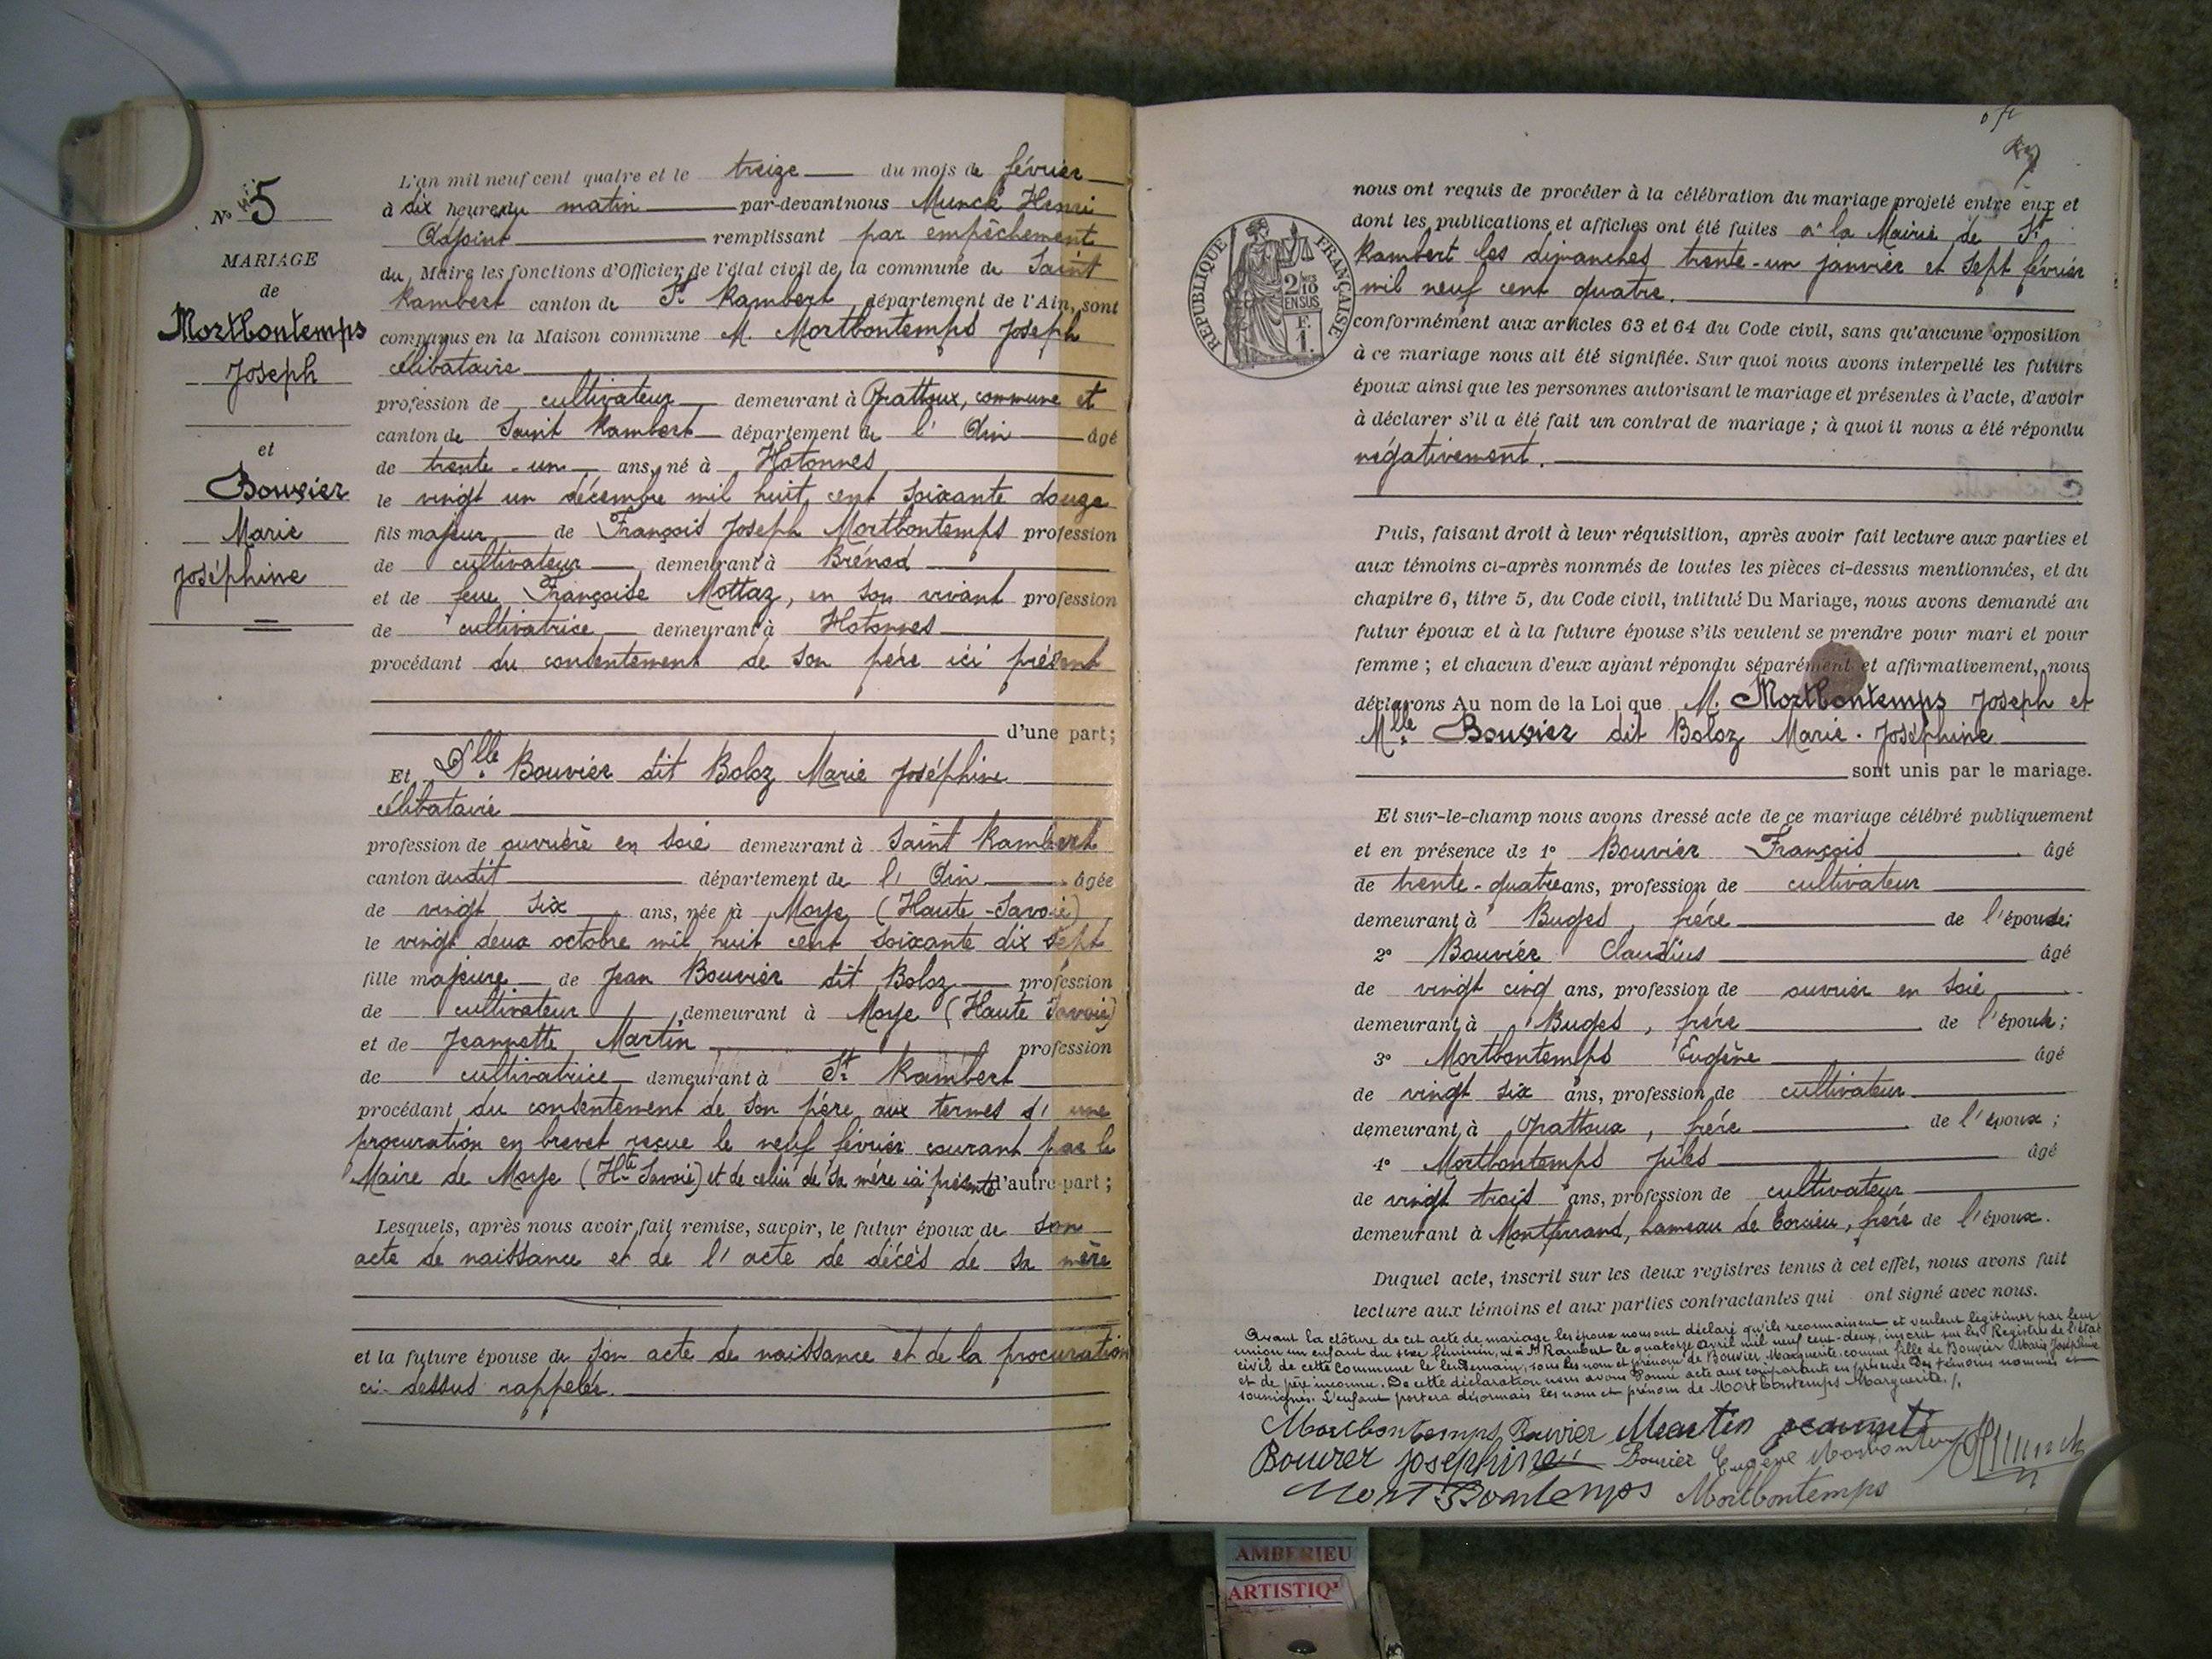 N° 5
MARIAGE
de
Mortbontemps
Joseph
et
Bouvier
Marie
Joséphine
L'an mil neuf cent quatre et le treize du mois de février
à dix heures du matin par-devant nous Munck Henri
Adjoint remplissant par empêchement
du Maire les fonctions d'Officier de l'état civil de la commune de Saint
Rambert canton de St Rambert, département de l'Ain, sont
comparus en la Maison commune M. Mortbontemps Joseph
célibataire
profession de cultivateur demeurant à Grattoux, commune et
canton de Saint Rambert département de l'Ain âgé
de trente-un ans, né à Hotonnes
le vingt un décembre mil huit cent soixante douze
fils majeur de François Joseph Mortbontemps profession
de cultivateur demeurant à Brénod
et de feue Françoise Mottaz, en son vivant profession
de cultivatrice demeurant à Hotonnes
procédant du consentement de son père ici présent
d'une part;
Et Dlle Bouvier dit Boloz Marie Joséphine
célibataire
profession de ouvrière en soie demeurant à Saint Rambert
canton dudit département de l'Ain âgée
de vingt six ans, née à Moye (Haute-Savoie)
le vingt deux octobre mil huit cent soixante dix sept
fille majeure de Jean Bouvier dit Boloz profession
de cultivateur demeurant à Moye (Haute Savoie)
et de Jeannette Martin profession
de cultivatrice demeurant à St Rambert
procédant du consentement de son père aux termes d'une
procuration en brevet reçue le neuf février courant par le
Maire de Moye (Hte Savoie) et de celui de sa mère ici présente d'autre part;
Lesquels, après nous avoir fait remise, savoir, le futur époux de son
acte de naissance et de l'acte de décès de sa mère
et la future épouse de son acte de naissance et de la procuration
ci-dessus rappelée.
nous ont requis de procéder à la célébration du mariage projeté entre eux et
dont les publications et affiches ont été faites à la Mairie de St
Rambert les dimanches trente-un janvier et sept février
mil neuf cent quatre.
RÉPUBLIQUE FRANÇAISE
2/10
EN SUS
F.
1.
conformément aux articles 63 et 64 du Code civil, sans qu'aucune opposition
à ce mariage nous ait été signifiée. Sur quoi nous avons interpellé les futurs
époux ainsi que les personnes autorisant le mariage et présentes à l'acte, d'avoir
à déclarer s'il a été fait un contrat de mariage; à quoi il nous a été répondu
négativement.
Puis, faisant droit à leur réquisition, après avoir fait lecture aux parties et
aux témoins ci-après nommés de toutes les pièces ci-dessus mentionnées, et du
chapitre 6, titre 5, du Code civil, intitulé Du Mariage, nous avons demandé au
futur époux et à la future épouse s'ils veulent se prendre pour mari et pour
femme; et chacun d'eux ayant répondu séparément et affirmativement, nous
déclarons Au nom de la Loi que M. Mortbontemps Joseph et
Mlle Bouvier dit Boloz Marie-Joséphine
sont unis par le mariage.
Et sur-le-champ nous avons dressé acte de ce mariage célébré publiquement
et en présence de 1° Bouvier François âgé
de trente-quatre ans, profession de cultivateur
demeurant à Buges, frère de l'épouse;
2° Bouvier Claudius âgé
de vingt cinq ans, profession de ouvrier en soie
demeurant à Buges, frère de l'épouse;
3° Mortbontemps Eugène âgé
de vingt six ans, profession de cultivateur
demeurant à Grattoux, frère de l'époux;
4° Mortbontemps Jules âgé
de vingt trois ans, profession de cultivateur
demeurant à Montferrand, hameau de Torcieu, frère de l'époux.
Duquel acte, inscrit sur les deux registres tenus à cet effet, nous avons fait
lecture aux témoins et aux parties contractantes qui ont signé avec nous.
Avant la clôture de cet acte de mariage les époux nous ont déclaré qu'ils reconnaissent et veulent légitimer par leur
union un enfant du sexe féminin, né à St Rambert le quatorze Avril mil neuf cent-deux, inscrit sur les Registres de l'état
civil de cette Commune le lendemain, sous les nom et prénom de Bouvier Marguerite, comme fille de Bouvier Marie Joséphine
et de père inconnu. De cette déclaration nous avons donné acte aux comparants en présence des témoins nommés et
soussignés. L'enfant portera désormais les nom et prénom de Mortbontemps Marguerite.
Mortbontemps Bouvier Martin
Bouvier Joséphine Bouvier Eugène Mortbontemps Munck
Mortbontemps Mortbontemps
AMBERIEU
ARTISTIQ